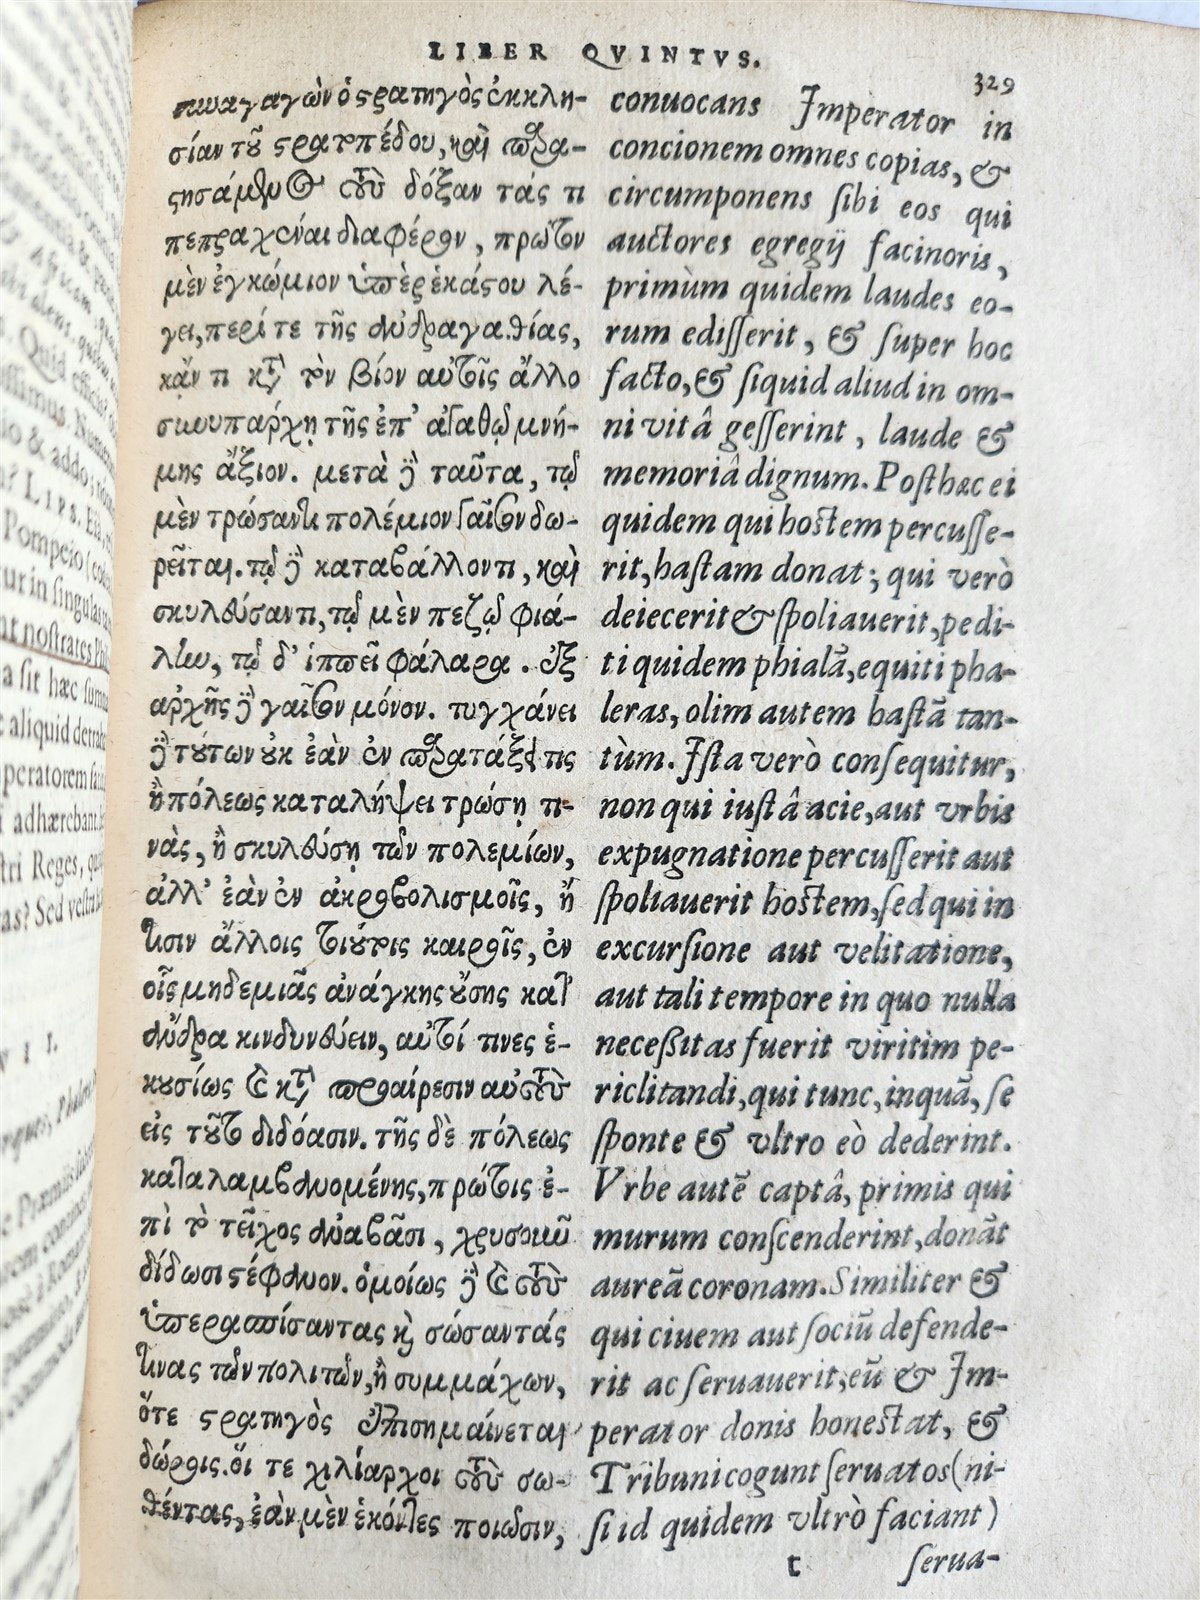 Quid effici
ssimus. Numerus
io & addo;
? LIPS.
Pompeio
ur in singulas
nt nostrates Phil
a sit hæc summa
aliquid detra
peratorem
i adhærebant
stri Reges,
as? Sed
VII.
LIBER QVINTVS.
329
συναγαγὼν ὁ στρατηγὸς ἐκκλη-
σίαν τοῦ στρατοπέδου, καὶ παρα-
στησάμενος τοὺς δόξαν τάς τι
πεπραχέναι διαφέρον, πρῶτον
μὲν ἐγκώμιον ὑπὲρ ἑκάστου λέ-
γει, περί τε τῆς ἀνδραγαθίας,
κἄν τι κατὰ τὸν βίον αὐτοῖς ἄλλο
συνυπάρχῃ τῆς ἐπ' ἀγαθῷ μνή-
μης ἄξιον. μετὰ δὲ ταῦτα, τῷ
μὲν τρώσαντι πολέμιον γαῖσον δω-
ρεῖται. τῷ δὲ καταβάλλοντι, καὶ
σκυλεύσαντι, τῷ μὲν πεζῷ φιά-
λην, τῷ δ' ἱππεῖ φάλαρα. ἐξ
ἀρχῆς δὲ γαῖσον μόνον. τυγχάνει
δὲ τούτων οὐκ ἐὰν ἐν παρατάξει τις
ἢ πόλεως καταλήψει τρώσῃ τι-
νὰς, ἢ σκυλεύσῃ τῶν πολεμίων,
ἀλλ' ἐὰν ἐν ἀκροβολισμοῖς, ἤ
τισιν ἄλλοις τοιούτοις καιροῖς, ἐν
οἷς μηδεμιᾶς ἀνάγκης οὔσης κατ'
ἄνδρα κινδυνεύειν, αὐτοί τινες ἑ-
κουσίως καὶ κατὰ προαίρεσιν αὐτοὺς
εἰς τοῦτο διδόασιν. τῆς δὲ πόλεως
καταλαμβανομένης, πρώτοις ἐ-
πὶ τὸ τεῖχος ἀναβᾶσι, χρυσοῦν
δίδωσι στέφανον. ὁμοίως δὲ καὶ τοὺς
ὑπερασπίσαντας καὶ σώσαντάς
τινας τῶν πολιτῶν, ἢ συμμάχων,
ὅτε στρατηγὸς ἐπισημαίνεται
δώροις. οἵ τε χιλίαρχοι τοὺς σω-
θέντας, ἐὰν μὲν ἑκόντες ποιῶσιν,
conuocans Imperator in
concionem omnes copias, &
circumponens sibi eos qui
auctores egregij facinoris,
primùm quidem laudes eo-
rum edisserit, & super hoc
facto, & siquid aliud in om-
ni vitâ gesserint, laude &
memoriâ dignum. Posthæc ei
quidem qui hostem percusse-
rit, hastam donat; qui verò
deiecerit & spoliauerit, pedi-
ti quidem phialã, equiti pha-
leras, olim autem hastã tan-
tùm. Ista verò consequitur,
non qui iustâ acie, aut vrbis
expugnatione percusserit aut
spoliauerit hostem, sed qui in
excursione aut velitatione,
aut tali tempore in quo nulla
necessitas fuerit viritim pe-
riclitandi, qui tunc, inquã, se
sponte & vltro eò dederint.
Vrbe autẽ captâ, primis qui
murum conscenderint, donãt
aureã coronam. Similiter &
qui ciuem aut sociũ defende-
rit ac seruauerit, eũ & Im-
perator donis honestat, &
Tribuni cogunt seruatos (ni-
si id quidem vltrò faciant)
t serua-